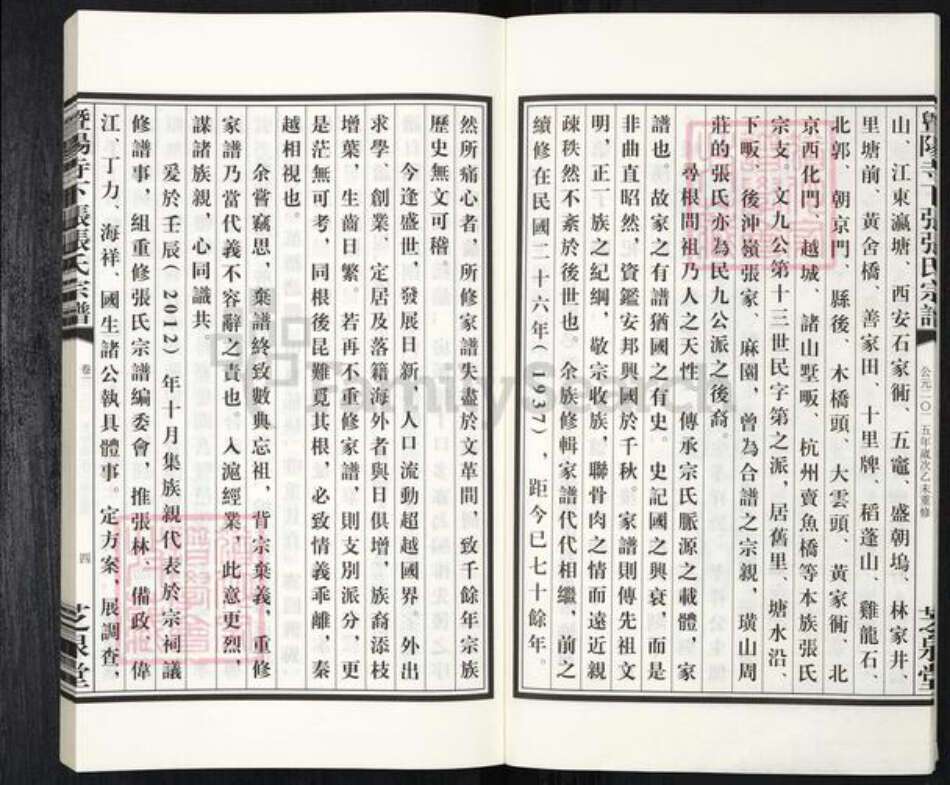 暨陽寺下張張氏宗譜
公元二〇一五年歲次乙未重修
芝泉堂
山、江東瀛塘、西安石家衖、五竈、盛朝塢、林家井、
里塘前、黃舍橋、善家田、十里牌、稻蓬山、雞龍石、
北郭、朝京門、縣後、木橋頭、大雲頭、黃家衖、北
京西化門、越城、諸山墅畈、杭州賣魚橋等本族張氏
宗支。文九公第十三世民字第之派，居舊里、塘水沿、
下畈、後沖嶺張家、麻園，曾為合譜之宗親，璜山周
莊的張氏亦為民九公派之後裔。
尋根問祖乃人之天性，傳承宗氏脈源之載體，家
譜也。故家之有譜猶國之有史。史記國之興衰，而是
非曲直昭然，資鑑安邦興國於千秋。家譜則傳先祖文
明，正一族之紀綱，敬宗收族，聯骨肉之情而遠近親
疎秩然不紊於後世也。余族修輯家譜代代相繼，前之
續修在民國二十六年(1937)，距今已七十餘年。
然所痛心者，所修家譜失盡於文革間，致千餘年宗族
歷史無文可稽。
今逢盛世，發展日新，人口流動超越國界。外出
求學、創業、定居及落籍海外者與日俱增，族裔添枝
增葉，生齒日繁。若再不重修家譜，則支別派分，更
是茫無可考，同根後昆難覓其根，必致情義乖離，秦
越相視也。
余嘗竊思，棄譜終致數典忘祖，背宗棄義，重修
家譜乃當代義不容辭之責也。入滬經業，此意更烈，
謀諸族親，心同識共。
爰於壬辰(2012)年十月集族親代表於宗祠議
修譜事，組重修張氏宗譜編委會，推張林、備政、偉
江、丁力、海祥、國生諸公執具體事。定方案，展調查，
暨陽寺下張張氏宗譜
卷一
四
芝泉堂
FamilySearch